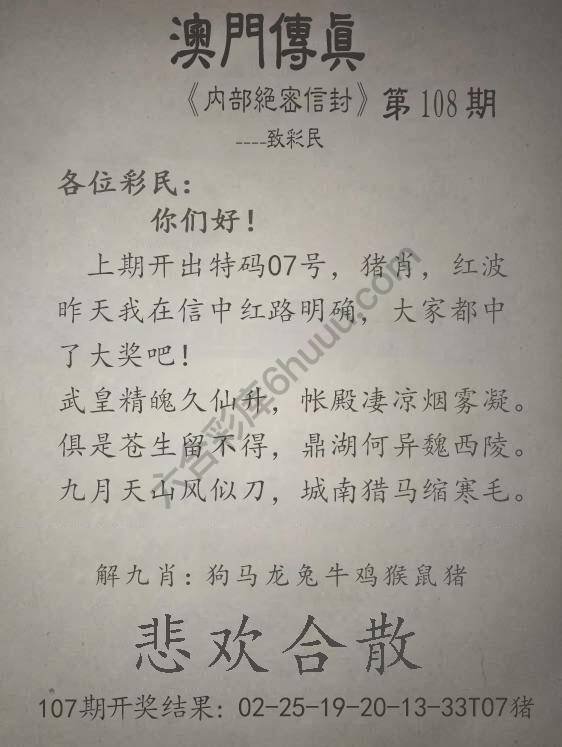 澳門傳眞
《内部絕密信封》第108期
----致彩民
各位彩民：
你们好！
上期开出特码07号，猪肖，红波
昨天我在信中红路明确，大家都中
了大奖吧！
武皇精魄久仙升，帐殿凄凉烟雾凝。
俱是苍生留不得，鼎湖何异魏西陵。
九月天山风似刀，城南猎马缩寒毛。
六合彩库6huuu.com
解九肖：狗马龙兔牛鸡猴鼠猪
悲欢合散
107期开奖结果：02-25-19-20-13-33T07猪